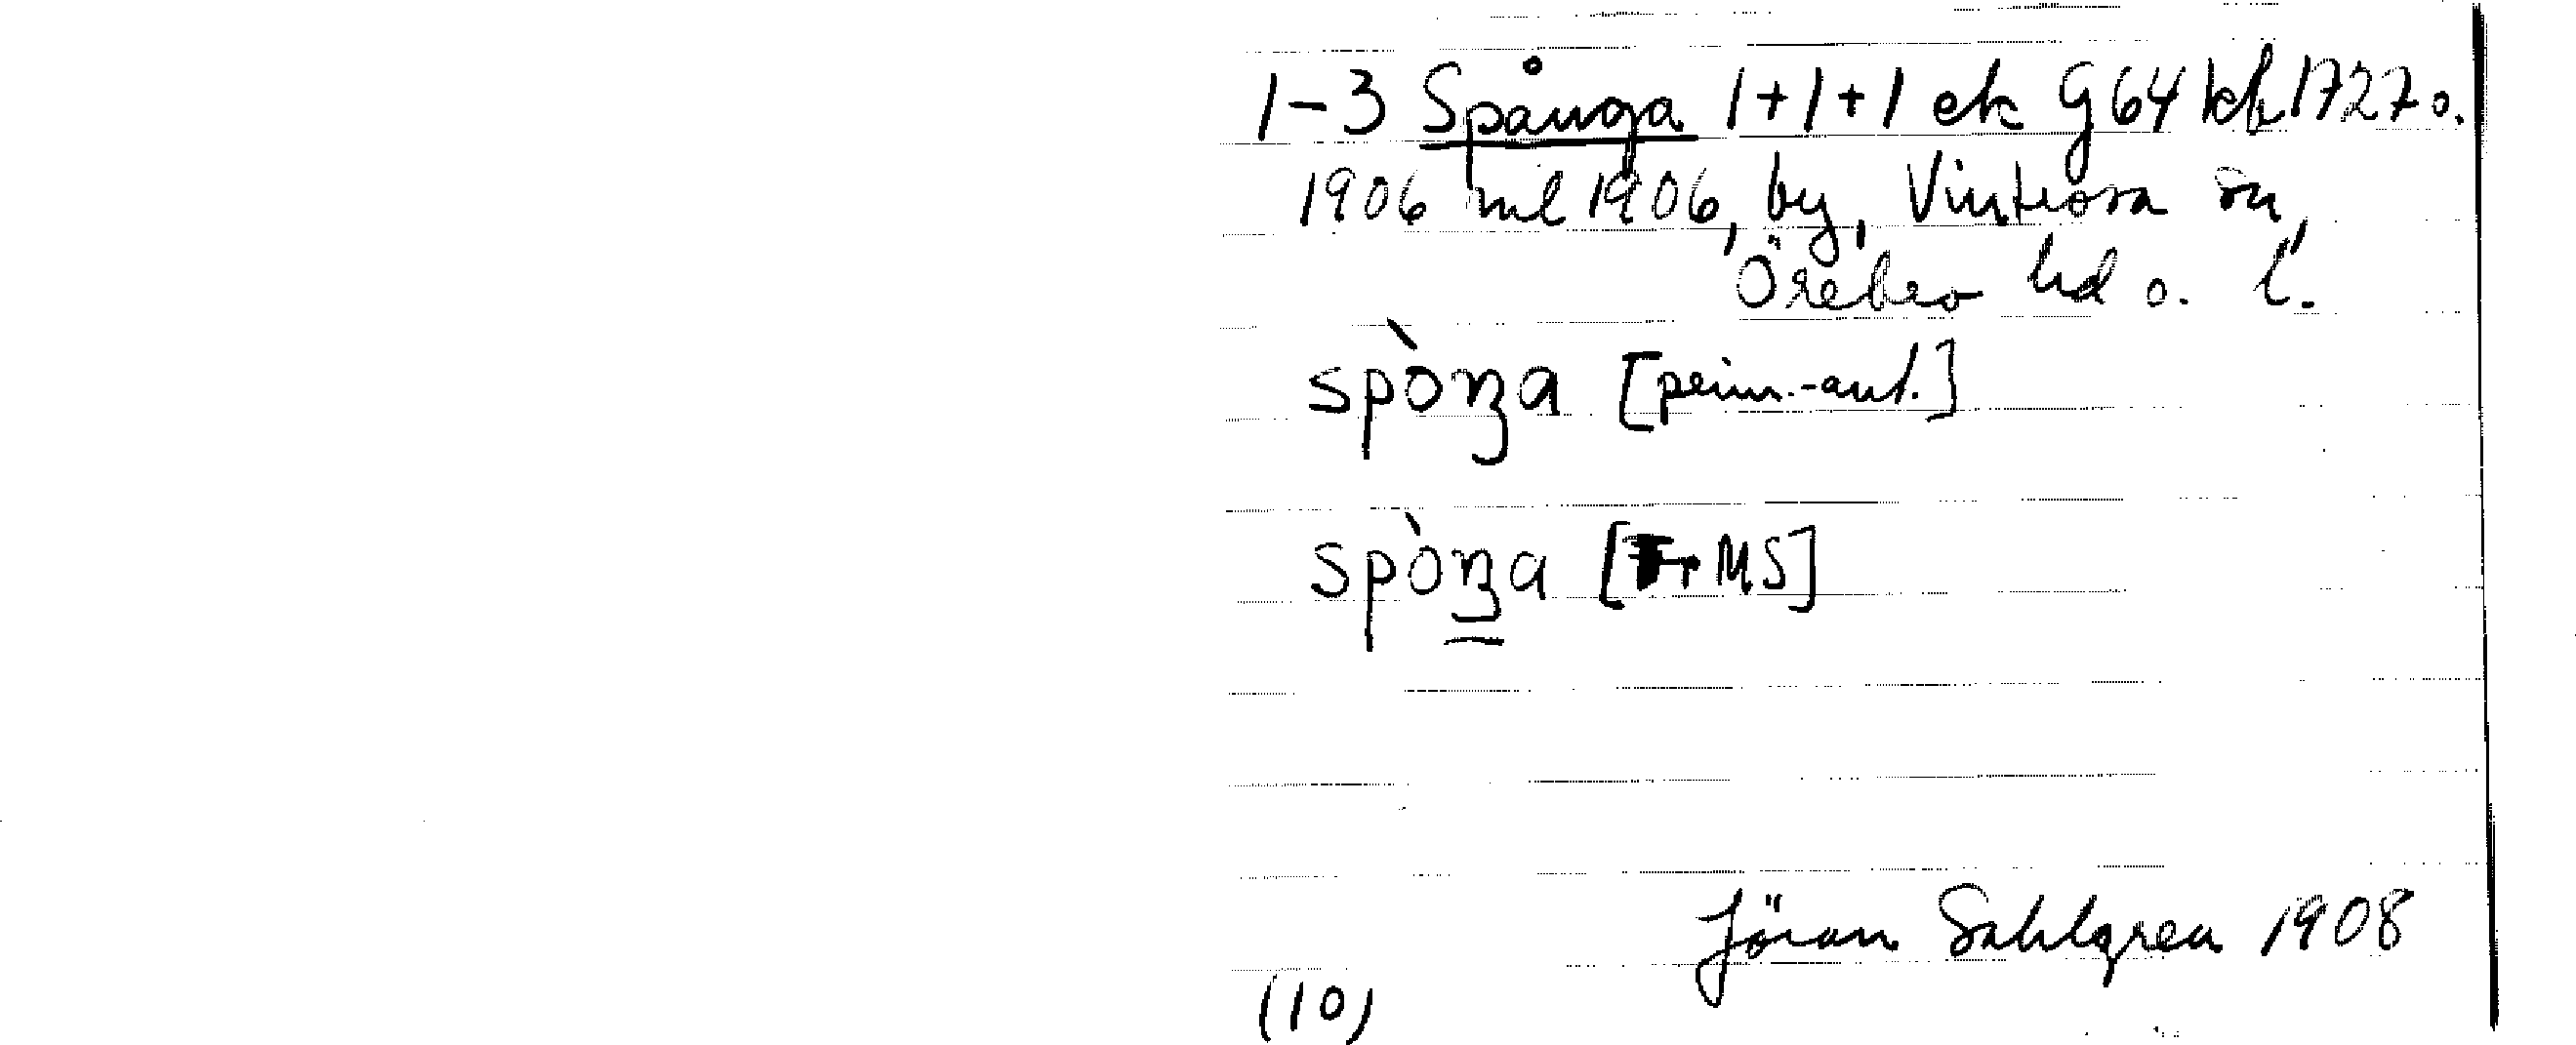 1-3 Spånga 1+1+1 ek G64 kb 1727 o.
1906 ml 1906, by, Vintrosa sn,
Örebro hd o. l.
spòŋa [prim.-ant.]
spòŋa [Fr MS]
Jöran Sahlgren 1908
(10)